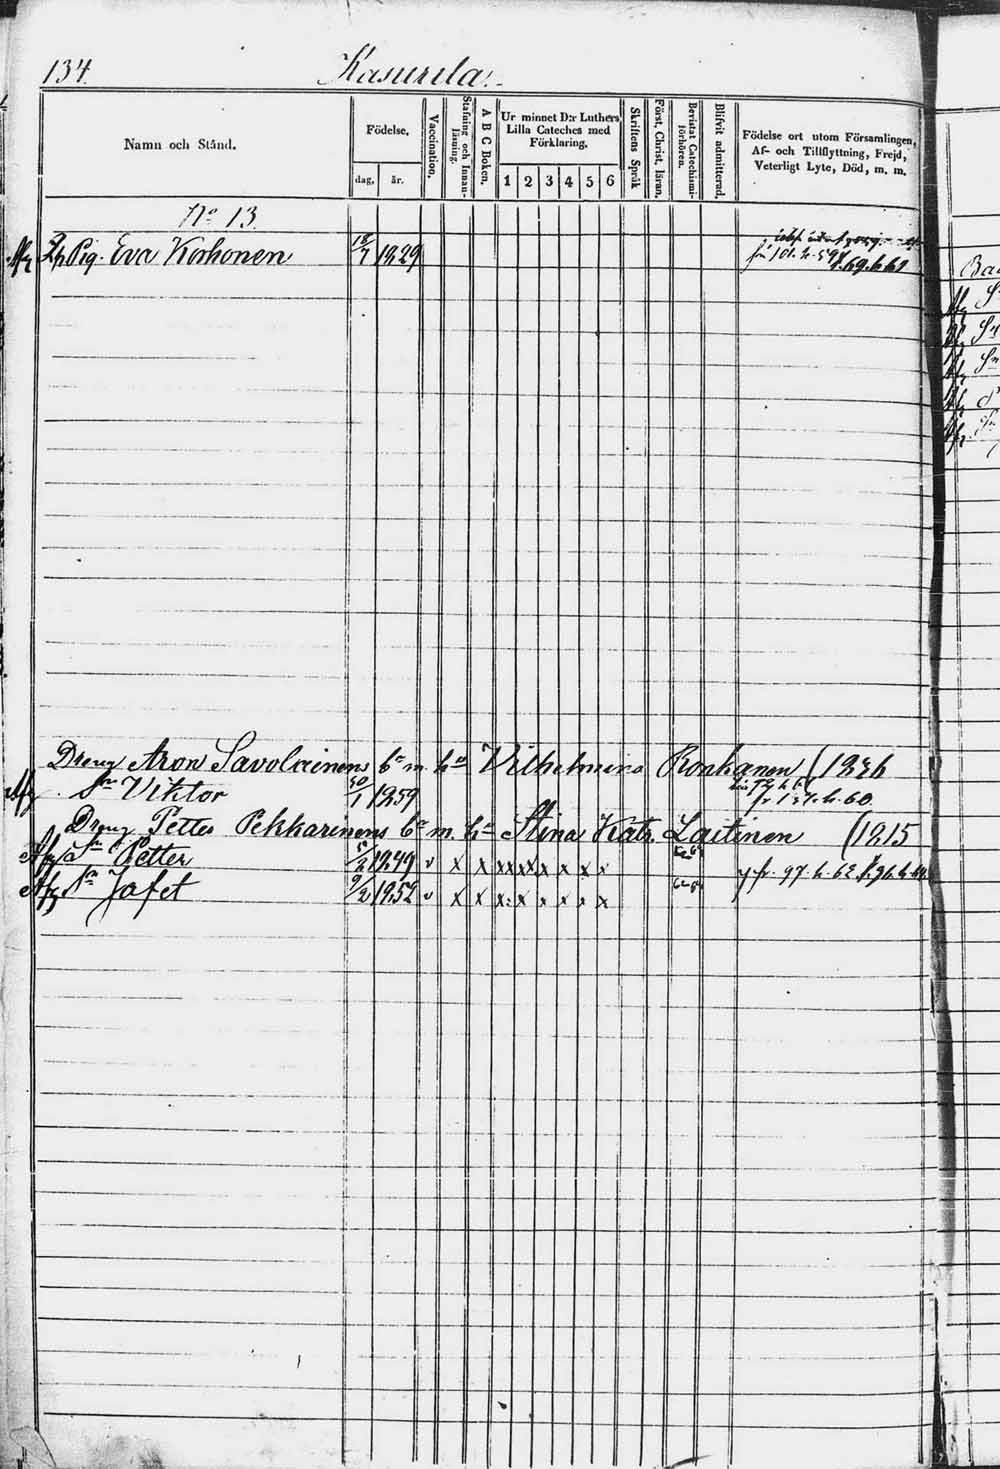 134.
Kasurila.
Namn och Stånd.
Födelse,
dag, år.
Vaccination.
Stafning och Innan-läsning.
A B C Boken.
Ur minnet D:r Luthers Lilla Cateches med Förklaring.
1 2 3 4 5 6
Skriftens Språk
Först. Christ. läran.
Bevistat Catechismi-förhören.
Blifvit admitterad.
Födelse ort utom Församlingen, Af- och Tillflyttning, Frejd, Veterligt Lyte, Död, m. m.
No 13.
Pig. Eva Korhonen 1829
Dreng Aron Savolainens bn m. hu Vilhelmina Ronkanen (1826
Sn Viktor 30/1 1859
Dreng Petter Pekkarinens bn m. hu Stina Katr. Laitinen (1815
Sn Petter 1849 v x x x x x x x
fr. 97. h. 62.
Sn Jafet 9/2 1852 v x x x x x x x x